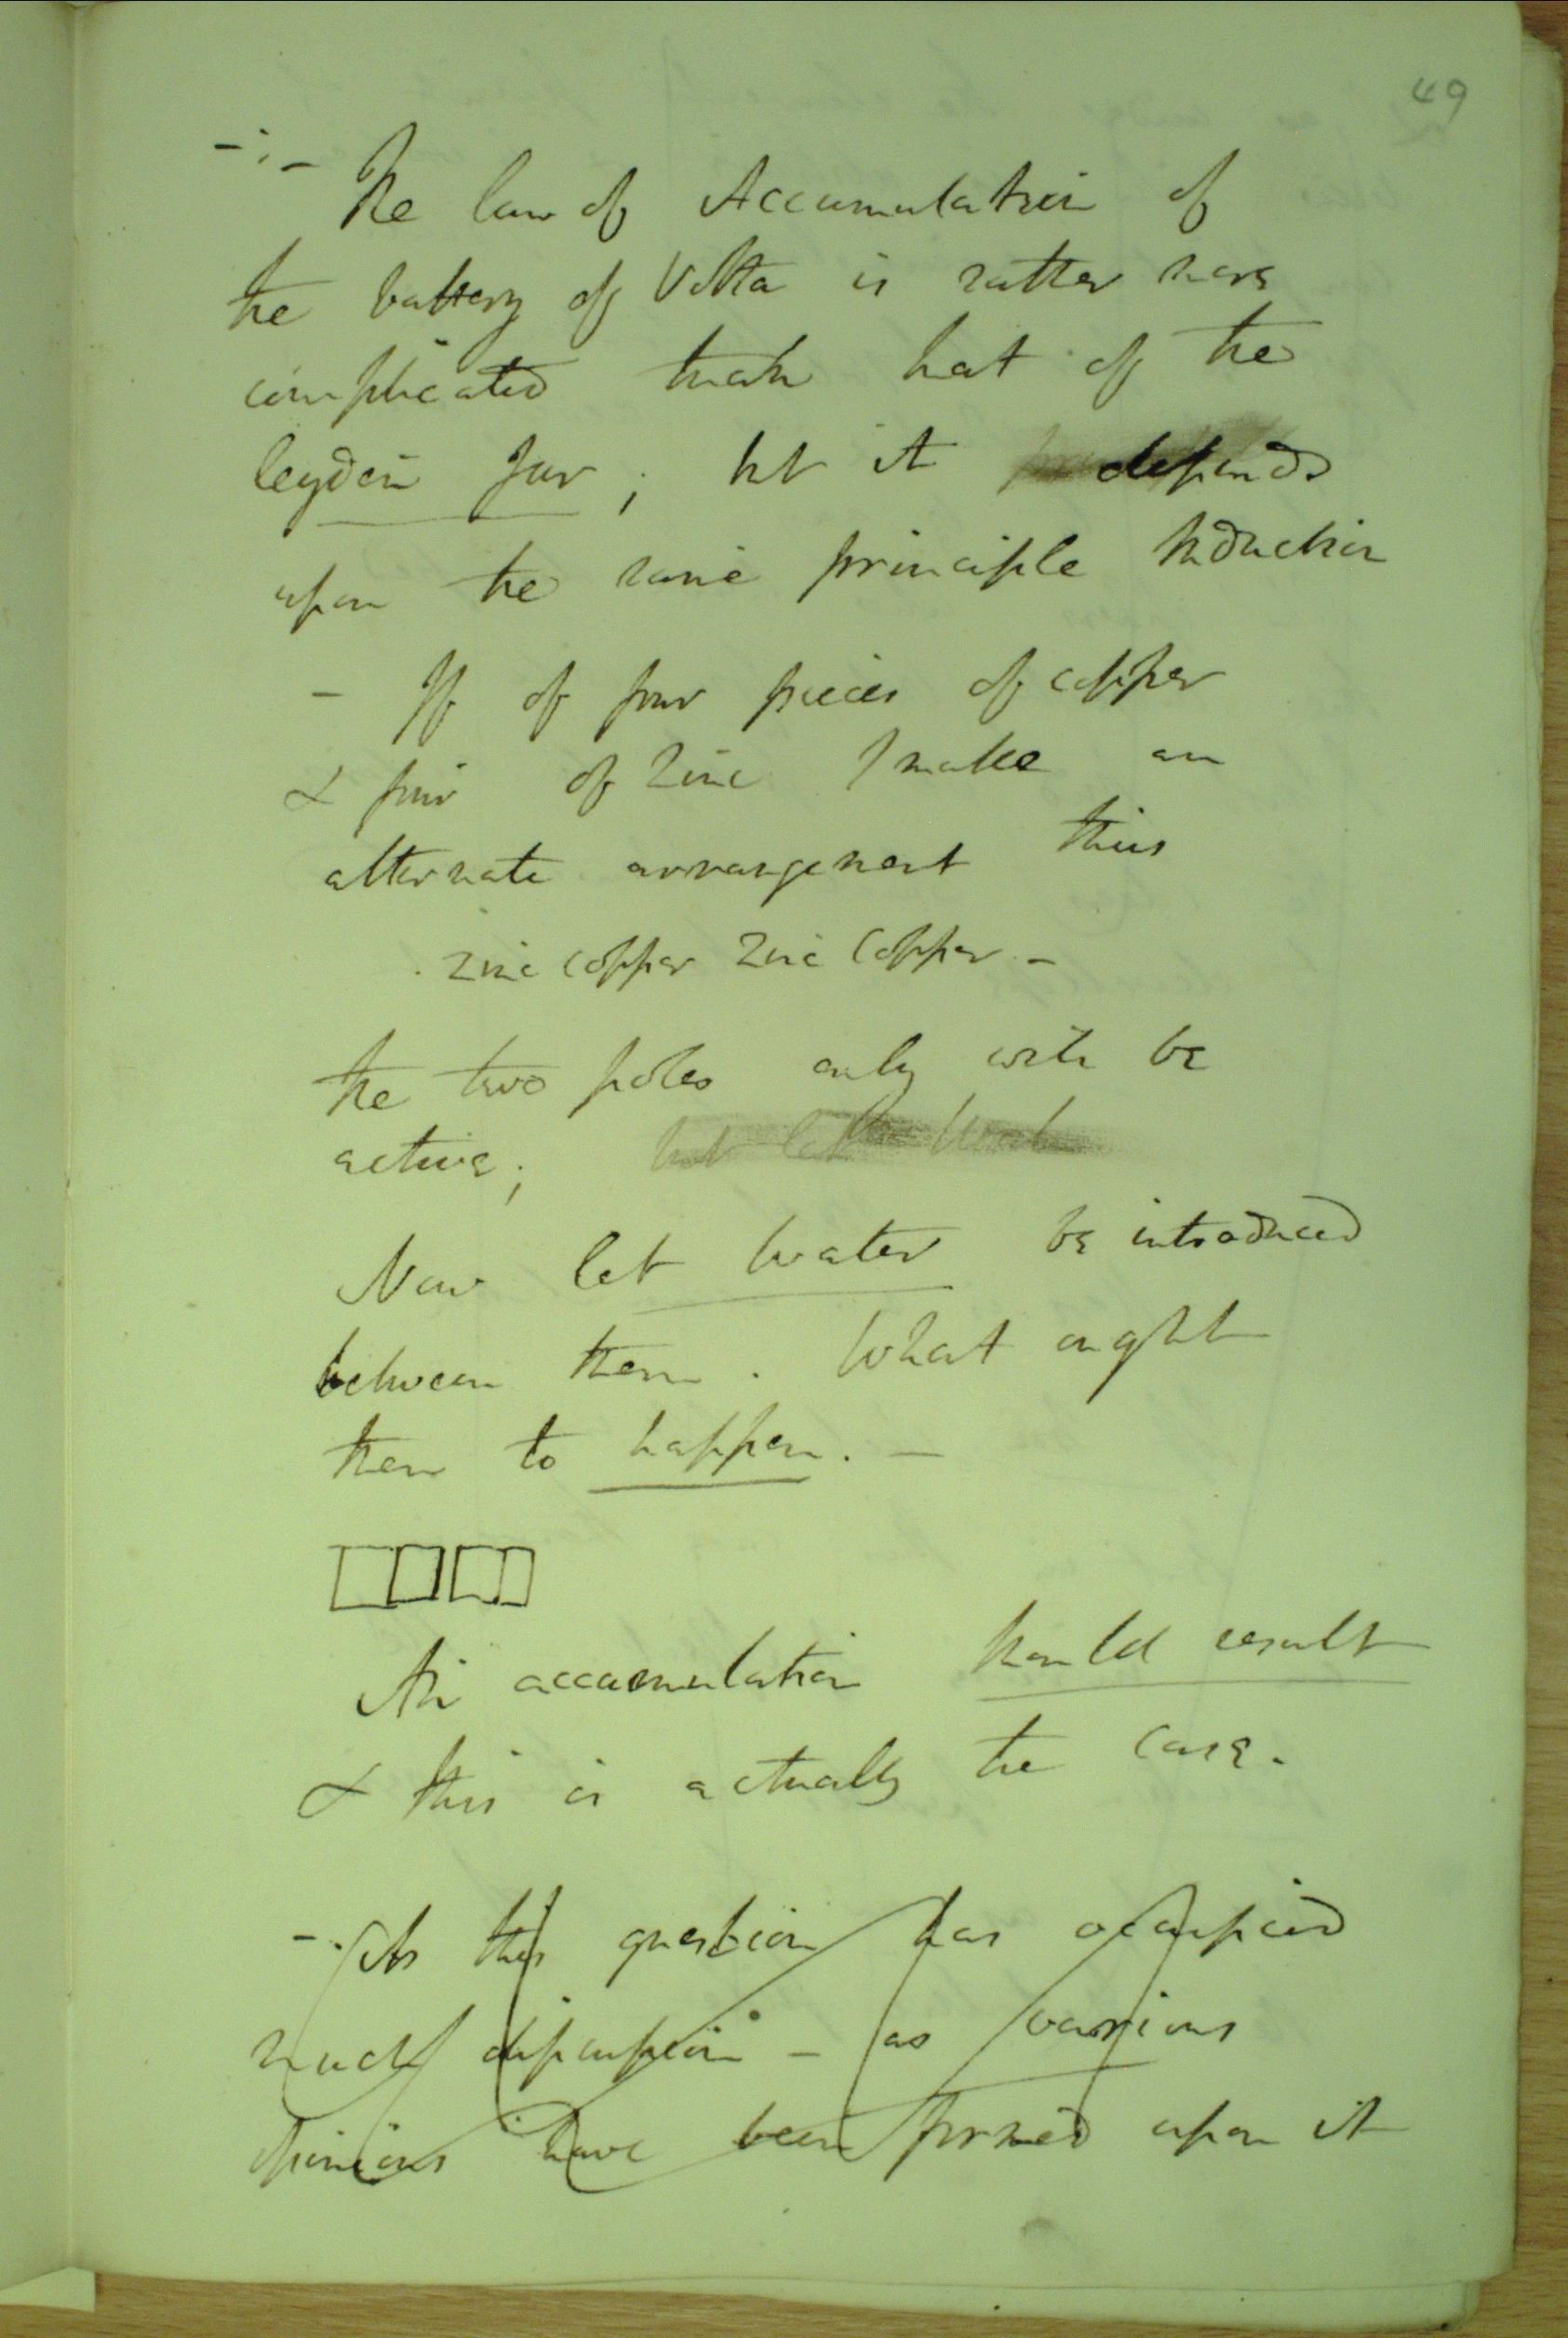 49
-:- The law of Accumulation of
the battery of Volta is rather more
complicated than that of the
leyden Jar; but it depends
upon the same principle Induction
- If of four pieces of copper
& four of Zinc I make an
alternate arrangement thus
Zinc Copper Zinc Copper -
the two poles only will be
active; but let Wat
Now let Water be introduced
between them. What ought
then to happen. -
An accumulation should result
& this is actually the case.
- As this question has occupied
much discussion - as various
opinions have been formed upon it